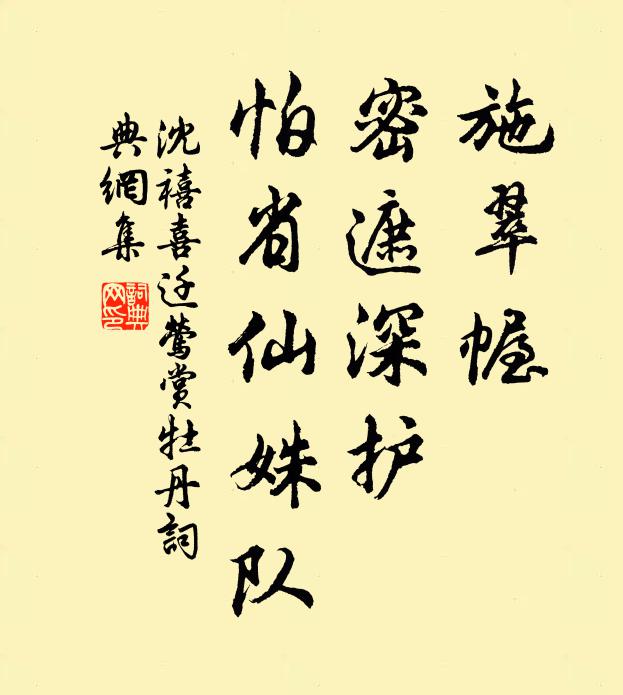 施翠幄
密遮深护
怕省仙姝队
沈禧喜迁莺赏牡丹詞
典網集
詞典
网印